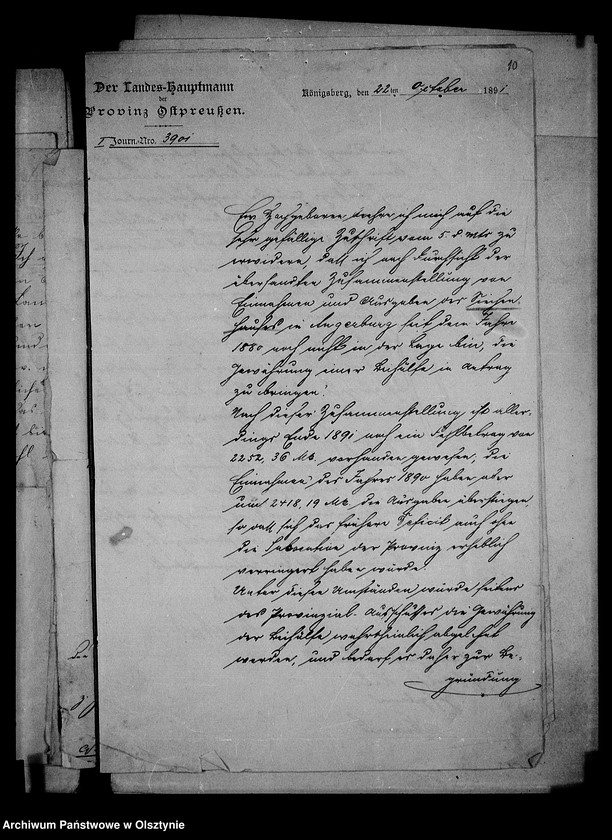 10
Der Landes-Hauptmann
der
Provinz Ostpreußen.
I Journ.-Nro. 3901
Königsberg, den 22ten October 1891
Ew. Hochgeboren beehre ich mich auf die
sehr gefällige Zuschrift vom 5. d. Mts. zu
erwidern, daß ich nach Durchsicht der
übersandten Zusammenstellung von
Einnahmen und Ausgaben des Siechen-
hauses in Angerburg seit dem Jahre
1880 noch nicht in der Lage bin, die
Gewährung einer Beihülfe in Antrag
zu bringen.
Nach dieser Zusammenstellung ist aller-
dings Ende 1891 noch ein Fehlbetrag von
2252,36 Mk. vorhanden gewesen; die
Einnahmen des Jahres 1890 haben aber
um 2418,19 Mk. die Ausgaben überstiegen,
so daß sich das frühere Deficit auch ohne
die Subvention der Provinz erheblich
verringert haben würde.
Unter diesen Umständen würde seitens
des Provinzial-Ausschusses die Gewährung
der Beihülfe wahrscheinlich abgelehnt
werden, und bedarf es daher zur Be-
gründung
Archiwum Państwowe w Olsztynie